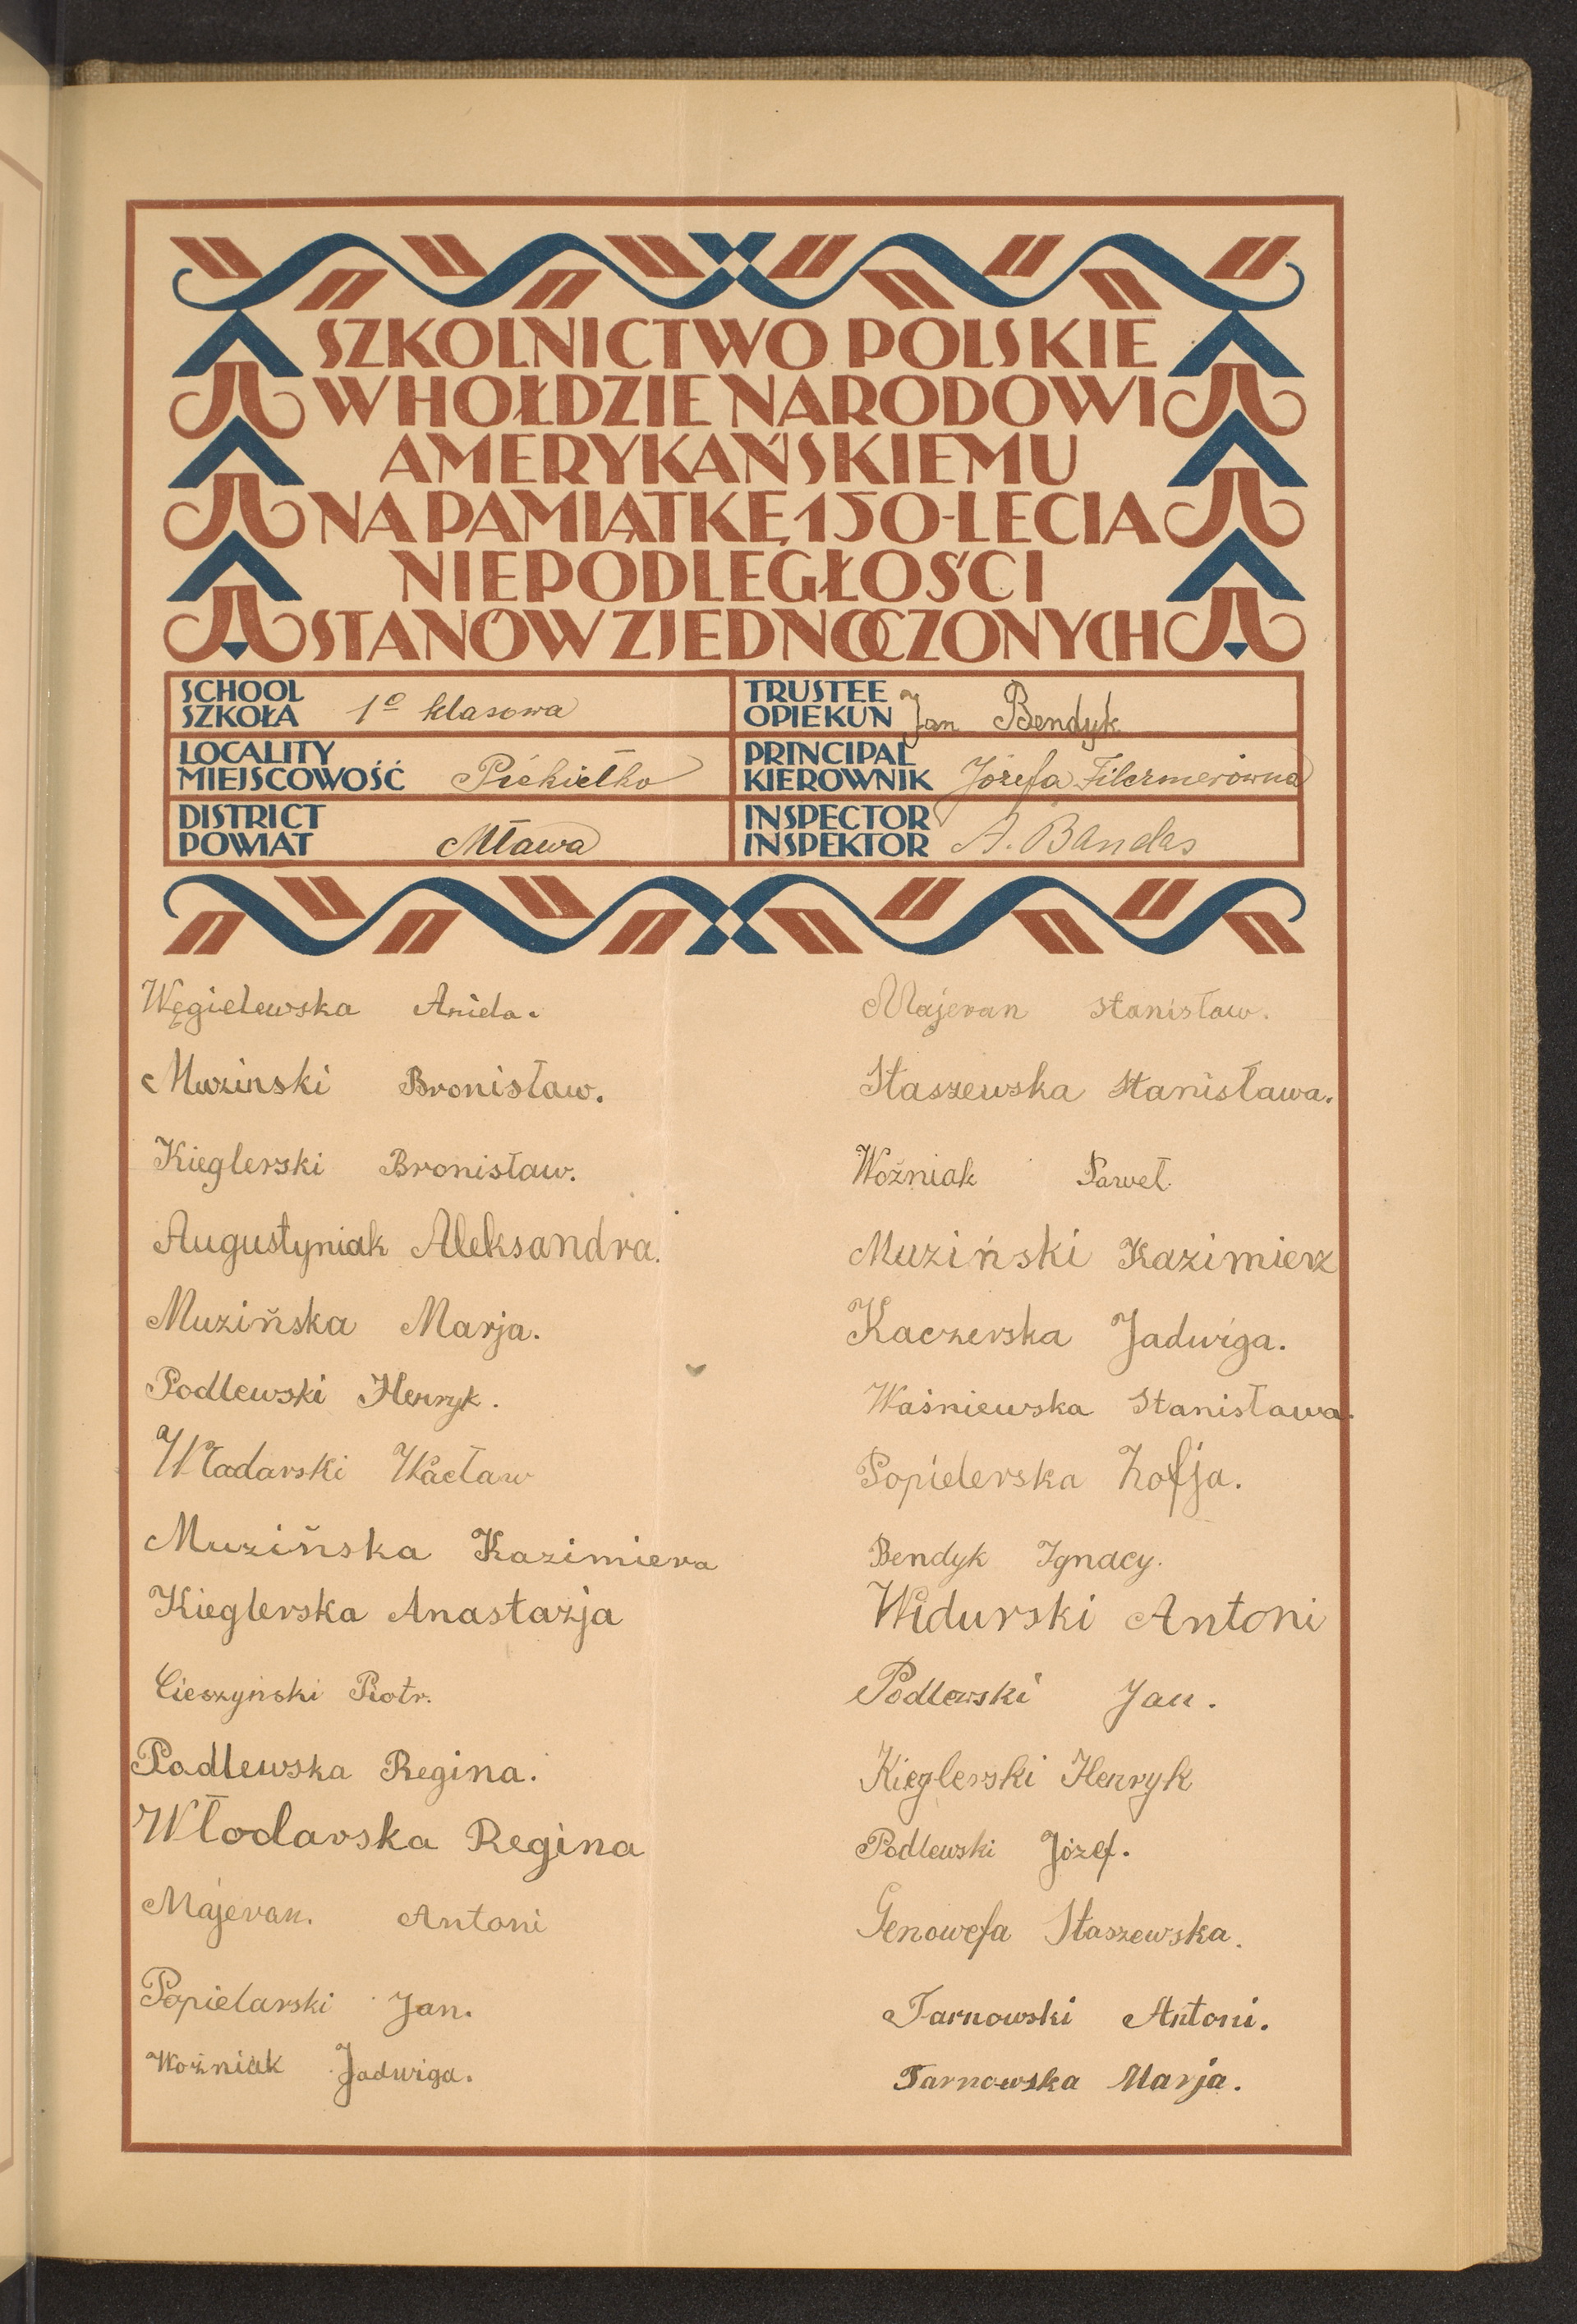 SZKOLNICTWO POLSKIE
W HOŁDZIE NARODOWI
AMERYKAŃSKIEMU
NA PAMIĄTKĘ 150-LECIA
NIEPODLEGŁOŚCI
STANÓW ZJEDNOCZONYCH
SCHOOL
SZKOŁA 1º klasowa
TRUSTEE
OPIEKUN Jan Bendyk
LOCALITY
MIEJSCOWOŚĆ Piekiełko
PRINCIPAL
KIEROWNIK Józefa Filczmerówna
DISTRICT
POWIAT Mława
INSPECTOR
INSPEKTOR A. Bandas
Węgielewska Aniela.
Muzinski Bronisław.
Kieglerski Bronisław.
Augustyniak Aleksandra.
Muzińska Marja.
Podlewski Henryk.
Władarski Wacław
Muzińska Kazimiera
Kieglerska Anastazja
Cieszyński Piotr.
Podlewska Regina.
Włodarska Regina
Majeran. Antoni
Popielarski Jan.
Woźniak Jadwiga.
Majeran Stanisław.
Staszewska Stanisława.
Woźniak Paweł
Muziński Kazimierz
Kaczerska Jadwiga.
Waśniewska Stanisława.
Popielerska Zofja.
Bendyk Ignacy.
Widurski Antoni
Podlewski Jan.
Kieglerski Henryk
Podlewski Józef.
Genowefa Staszewska.
Tarnowski Antoni.
Tarnowska Marja.